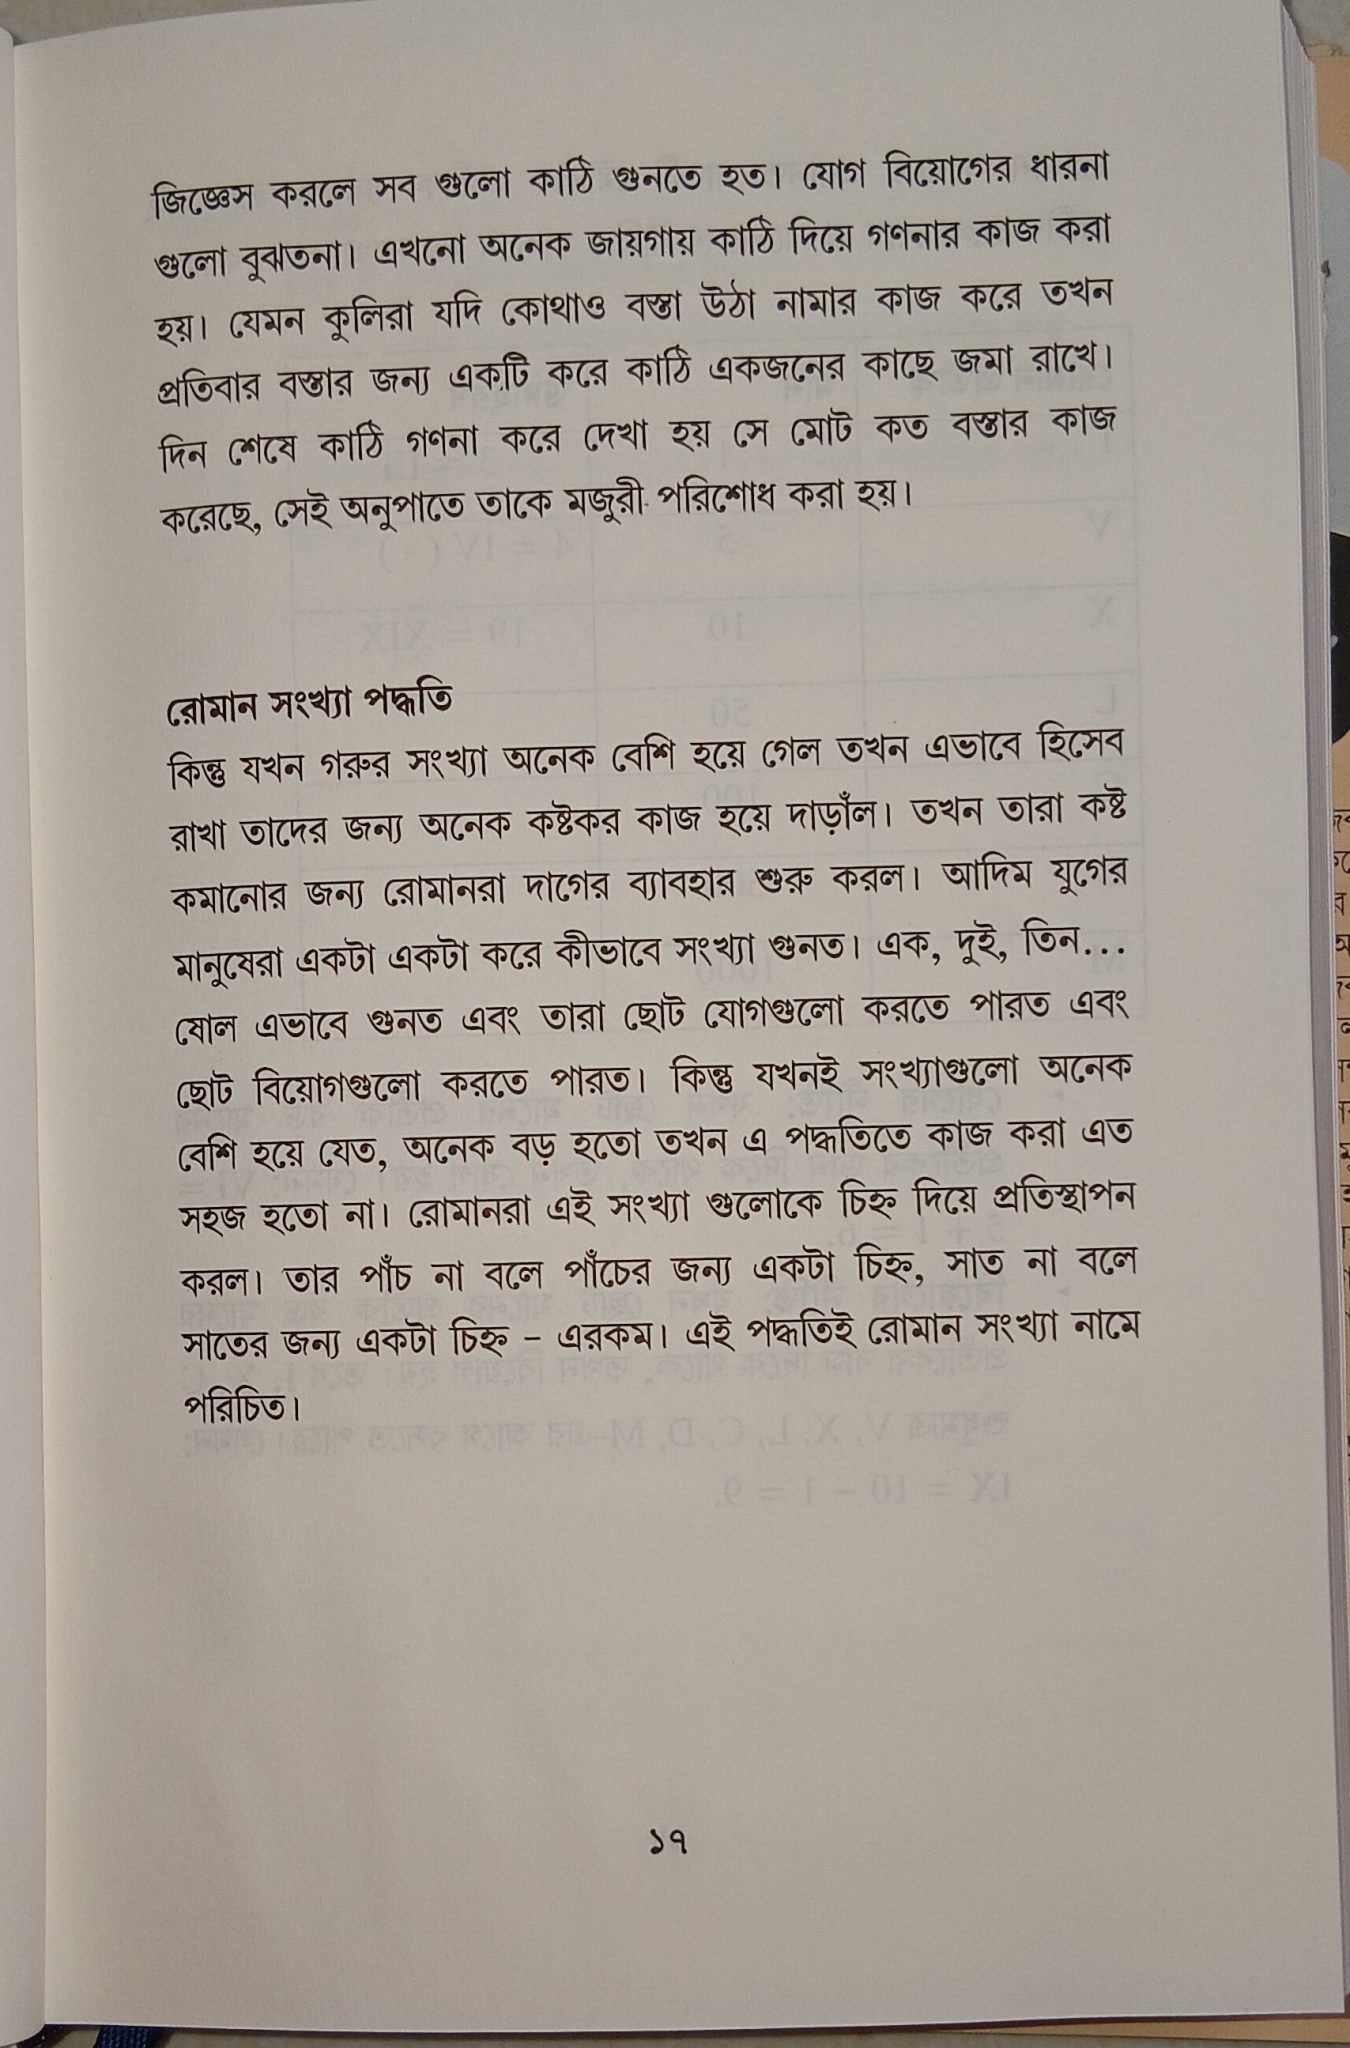 জিজ্ঞেস করলে সব গুলো কাঠি গুনতে হত। যোগ বিয়োগের ধারনা
গুলো বুঝতনা। এখনো অনেক জায়গায় কাঠি দিয়ে গণনার কাজ করা
হয়। যেমন কুলিরা যদি কোথাও বস্তা উঠা নামার কাজ করে তখন
প্রতিবার বস্তার জন্য একটি করে কাঠি একজনের কাছে জমা রাখে।
দিন শেষে কাঠি গণনা করে দেখা হয় সে মোট কত বস্তার কাজ
করেছে, সেই অনুপাতে তাকে মজুরী পরিশোধ করা হয়।
রোমান সংখ্যা পদ্ধতি
কিন্তু যখন গরুর সংখ্যা অনেক বেশি হয়ে গেল তখন এভাবে হিসেব
রাখা তাদের জন্য অনেক কষ্টকর কাজ হয়ে দাড়াঁল। তখন তারা কষ্ট
কমানোর জন্য রোমানরা দাগের ব্যাবহার শুরু করল। আদিম যুগের
মানুষেরা একটা একটা করে কীভাবে সংখ্যা গুনত। এক, দুই, তিন...
ষোল এভাবে গুনত এবং তারা ছোট যোগগুলো করতে পারত এবং
ছোট বিয়োগগুলো করতে পারত। কিন্তু যখনই সংখ্যাগুলো অনেক
বেশি হয়ে যেত, অনেক বড় হতো তখন এ পদ্ধতিতে কাজ করা এত
সহজ হতো না। রোমানরা এই সংখ্যা গুলোকে চিহ্ন দিয়ে প্রতিস্থাপন
করল। তার পাঁচ না বলে পাঁচের জন্য একটা চিহ্ন, সাত না বলে
সাতের জন্য একটা চিহ্ন – এরকম। এই পদ্ধতিই রোমান সংখ্যা নামে
পরিচিত।
১৭